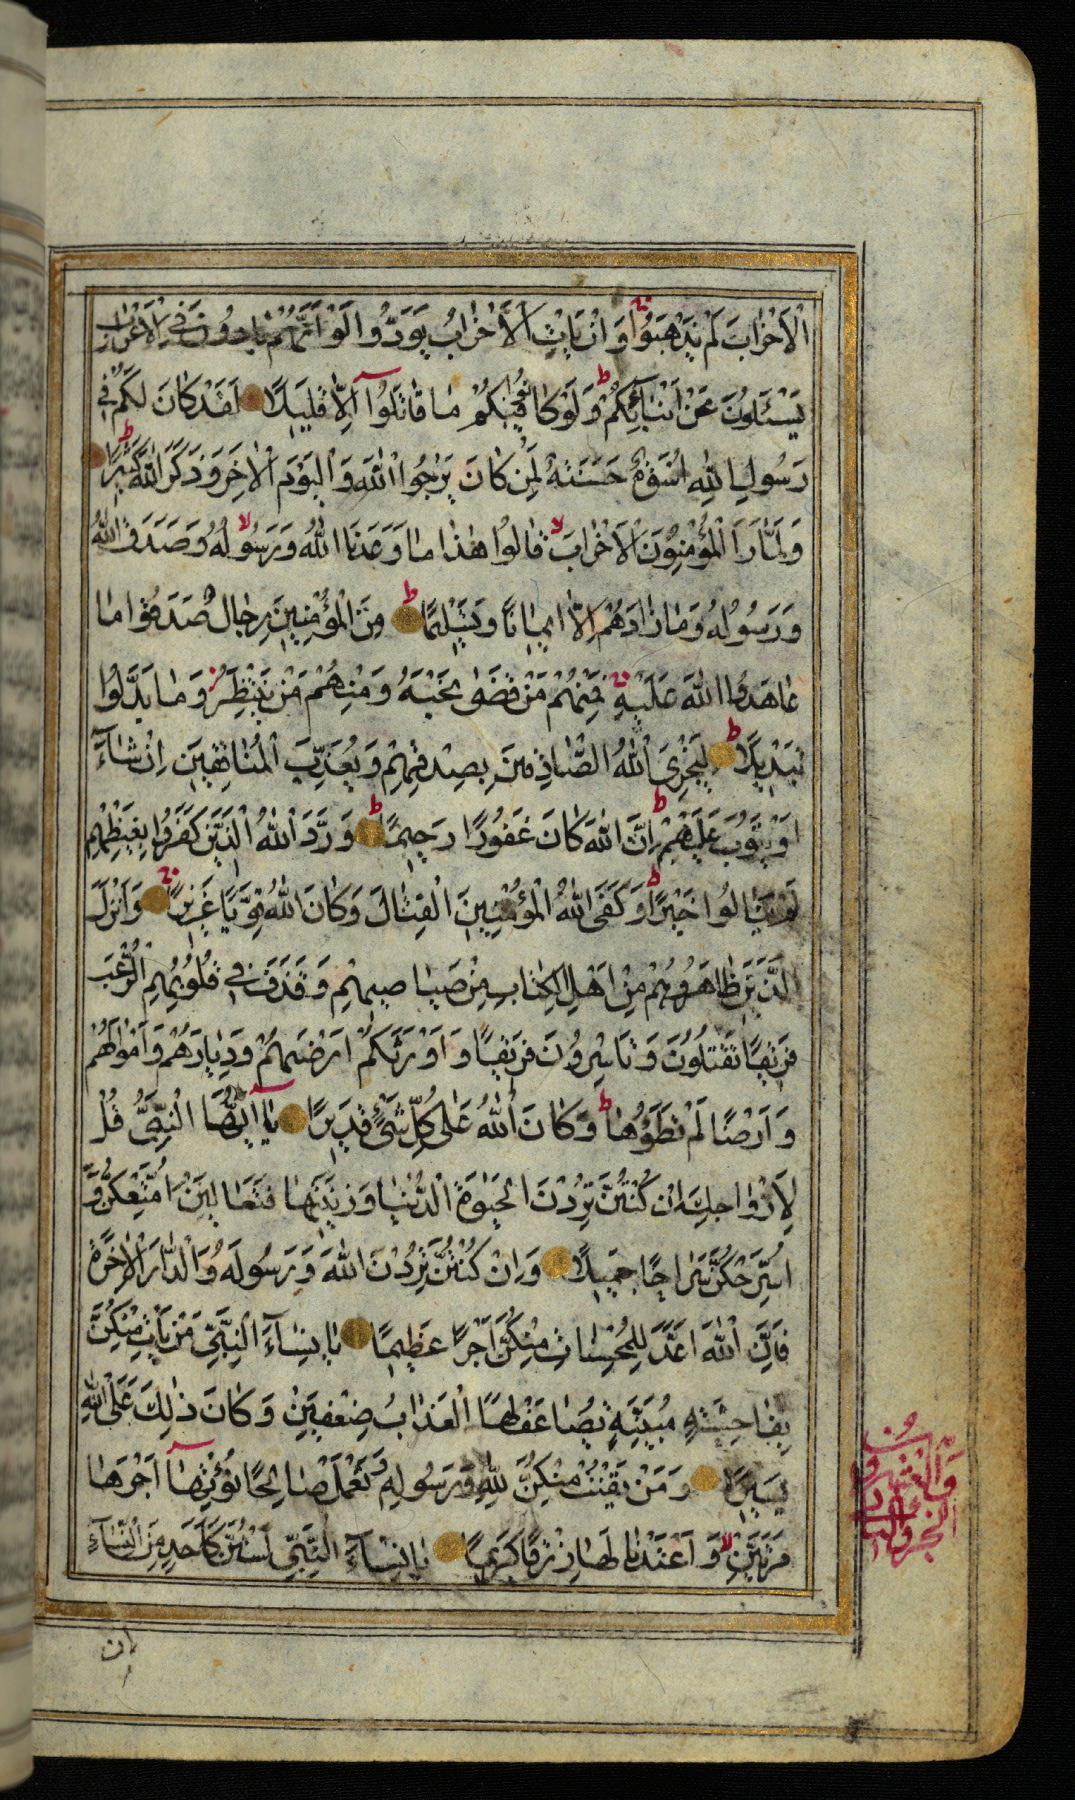 الْاَحْزٰابَ لَمْ يَذْهَبُوا وَاِنْ يَاْتِ الْاَحْزٰابُ يَوَدُّوا لَوْ اَنَّهُمْ بٰادُونَ فِى الْاَعْرٰابِ
يَسْئَلُونَ عَنْ اَنْبٰائِكُمْ وَلَوْ كٰانُوا فيكُمْ مٰا قٰاتَلُوا اِلّٰا قَليلًا لَقَدْ كٰانَ لَكُمْ فى
رَسُولِ اللهِ اُسْوَةٌ حَسَنَةٌ لِمَنْ كٰانَ يَرْجُوا اللهَ وَالْيَوْمَ الْاٰخِرَ وَذَكَرَ اللهَ كَثيرًا
وَلَمّٰا رَاَ الْمُؤْمِنُونَ الْاَحْزٰابَ قٰالُوا هٰذٰا مٰا وَعَدَنَا اللهُ وَرَسُولُهُ وَصَدَقَ اللهُ
وَرَسُولُهُ وَمٰا زٰادَهُمْ اِلّٰا ايمٰانًا وَتَسْليمًا مِنَ الْمُؤْمِنينَ رِجٰالٌ صَدَقُوا مٰا
عٰاهَدُوا اللهَ عَلَيْهِ فَمِنْهُمْ مَنْ قَضٰى نَحْبَهُ وَمِنْهُمْ مَنْ يَنْتَظِرُ وَمٰا بَدَّلُوا
تَبْديلًا لِيَجْزِىَ اللهُ الصّٰادِقينَ بِصِدْقِهِمْ وَيُعَذِّبَ الْمُنٰافِقينَ اِنْ شٰاءَ
اَوْ يَتُوبَ عَلَيْهِمْ اِنَّ اللهَ كٰانَ غَفُورًا رَحيمًا وَرَدَّ اللهُ الَّذينَ كَفَرُوا بِغَيْظِهِمْ
لَمْ يَنٰالُوا خَيْرًا وَكَفَى اللهُ الْمُؤْمِنينَ الْقِتٰالَ وَكٰانَ اللهُ قَوِيًّا عَزيزًا وَاَنْزَلَ
الَّذينَ ظٰاهَرُوهُمْ مِنْ اَهْلِ الْكِتٰابِ مِنْ صَيٰاصيهِمْ وَقَذَفَ فى قُلُوبِهِمُ الرُّعْبَ
فَريقًا تَقْتُلُونَ وَتَاْسِرُونَ فَريقًا وَاَوْرَثَكُمْ اَرْضَهُمْ وَدِيٰارَهُمْ وَاَمْوٰالَهُمْ
وَاَرْضًا لَمْ تَطَؤُهٰا وَكٰانَ اللهُ عَلٰى كُلِّ شَىْءٍ قَديرًا يٰا اَيُّهَا النَّبِىُّ قُلْ
لِاَزْوٰاجِكَ اِنْ كُنْتُنَّ تُرِدْنَ الْحَيٰوةَ الدُّنْيٰا وَزينَتَهٰا فَتَعٰالَيْنَ اُمَتِّعْكُنَّ وَ
اُسَرِّحْكُنَّ سَرٰاحًا جَميلًا وَاِنْ كُنْتُنَّ تُرِدْنَ اللهَ وَرَسُولَهُ وَالدّٰارَ الْاٰخِرَةَ
فَاِنَّ اللهَ اَعَدَّ لِلْمُحْسِنٰاتِ مِنْكُنَّ اَجْرًا عَظيمًا يٰا نِسٰاءَ النَّبِىِّ مَنْ يَاْتِ مِنْكُنَّ
بِفٰاحِشَةٍ مُبَيِّنَةٍ يُضٰاعَفْ لَهَا الْعَذٰابُ ضِعْفَيْنِ وَكٰانَ ذٰلِكَ عَلَى اللهِ
يَسيرًا وَمَنْ يَقْنُتْ مِنْكُنَّ لِلّٰهِ وَرَسُولِهِ وَتَعْمَلْ صٰالِحًا نُؤْتِهٰا اَجْرَهٰا
مَرَّتَيْنِ وَاَعْتَدْنٰا لَهٰا رِزْقًا كَريمًا يٰا نِسٰاءَ النَّبِىِّ لَسْتُنَّ كَاَحَدٍ مِنَ النِّسٰاءِ
الجزو الثانى
والعشرون
اِن